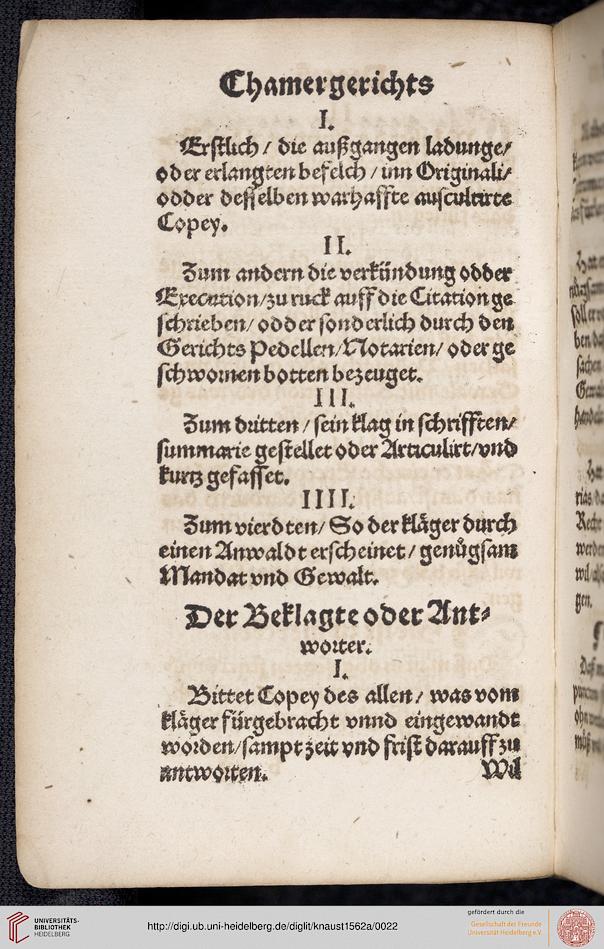 Chamergerichts
I.
Erstlich / die außgangen ladunge/
oder erlangten befelch / inn Originali/
odder desselben warhaffte auscultirte
Copey.
II.
Zum andern die verkündung odder
Execution/zu ruck auff die Citation ge
schrieben/ odder sonderlich durch den
Gerichts Pedellen/Notarien/ oder ge
schwornen botten bezeuget.
III.
Zum dritten / sein klag in schrifften/
summarie gestellet oder Articulirt/vnd
kurtz gefasset.
IIII.
Zum vierdten/ So der kläger durch
einen Anwaldt erscheinet / genůgsam
Mandat vnd Gewalt.
Der Beklagte oder Ant-
worter.
I.
Bittet Copey des allen / was vom
kläger fürgebracht vnnd eingewandt
worden/sampt zeit vnd frist darauff zu
antworten.
Wil
UNIVERSITÄTS-
BIBLIOTHEK
HEIDELBERG
http://digi.ub.uni-heidelberg.de/diglit/knaust1562a/0022
gefördert durch die
Gesellschaft der Freunde
Universität Heidelberg e.V.